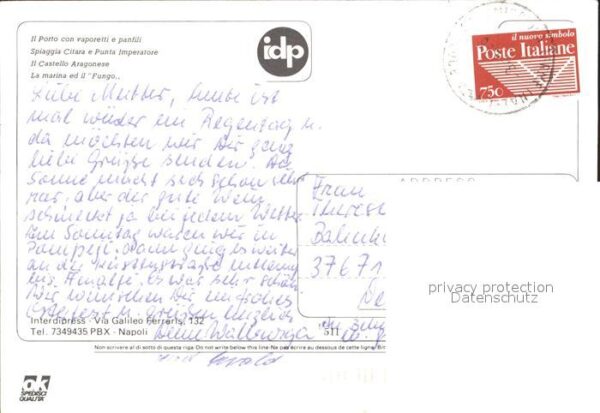 Il Porto con vaporetti e panfili
Spiaggia Citara e Punta Imperatore
Il Castello Aragonese
La marina ed il "Fungo„
idp
il nuovo simbolo
Poste Italiane
750
Liebe Mutter, heute ist
mal wieder ein Regentag u.
da möchten wir Dir ganz
liebe Grüsse senden. Die
Sonne macht sich schon sehr
rar, aber der gute Wein
schmeckt ja bei jedem Wetter
Am Sonntag waren wir in
Pompeji. Dann ging es weiter
an der Küstenstraße entlang
bis Amalfi. Es war sehr schön
Wir wünschen Dir ein frohes
Osterfest u. grüßen herzlich
Deine Walburga
und
ADDRESS
Frau
Therese
37671
privacy protection
Datenschutz
Interdipress - Via Galileo Ferraris, 132
Tel. 7349435 PBX - Napoli
511
Non scrivere al di sotto di questa riga. Do not write below this line-Ne pas écrire au dessous de cette ligne
ok
SPEDISCI
QUALITÀ